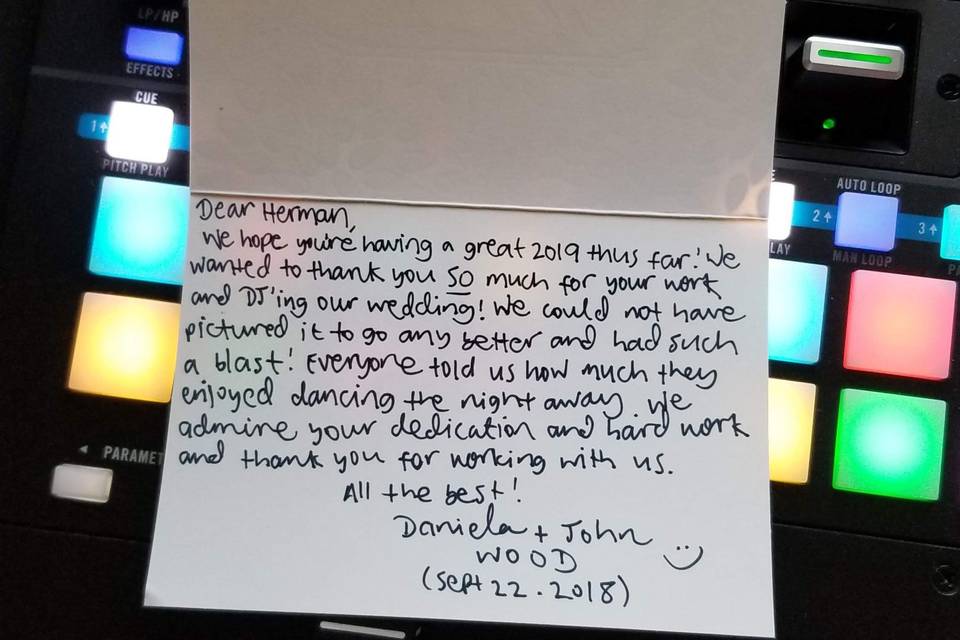 LP/HP
EFFECTS
CUE
1
PITCH PLAY
PARAMET
Dear Herman,
We hope you're having a great 2019 thus far! We
wanted to thank you SO much for your work
and DJ'ing our wedding! We could not have
pictured it to go any better and had such
a blast! Everyone told us how much they
enjoyed dancing the night away. We
admire your dedication and hard work
and thank you for working with us.
All the best!
Daniela + John
WOOD
(Sept 22. 2018)
E
LAY
AUTO LOOP
2
3
MAN LOOP
PA